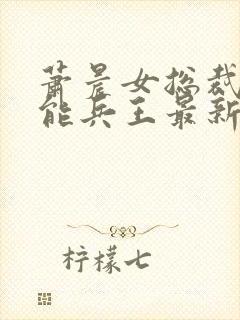 萧晨女总裁
能兵王最新
柠檬七